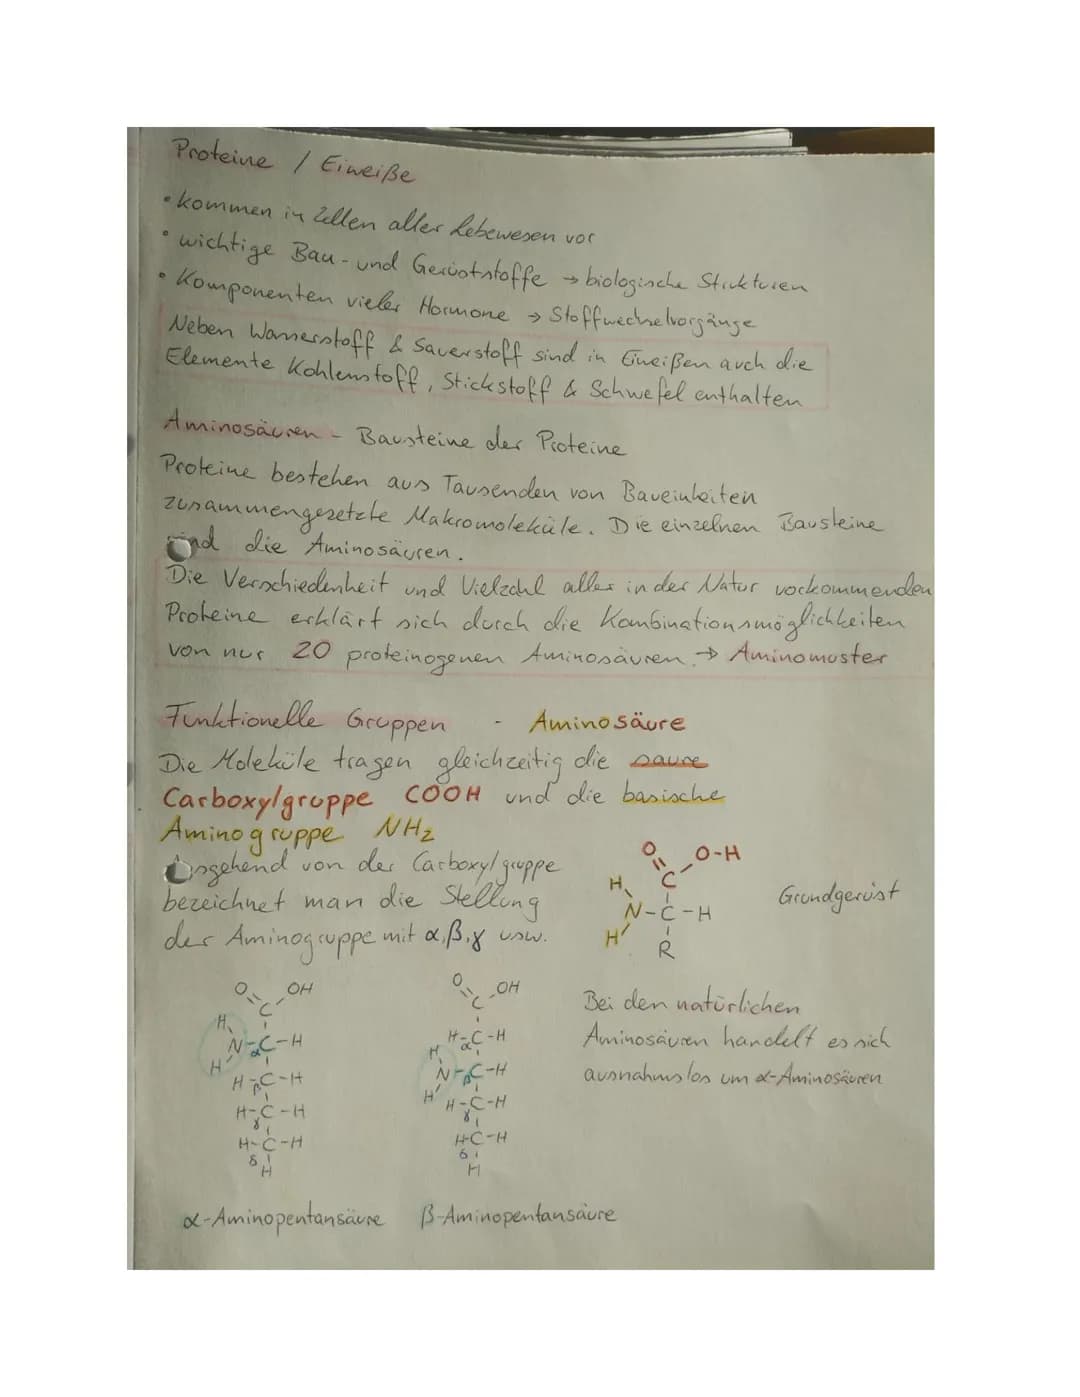 Proteine / Eiweiße
• kommen in Zellen aller Lebewesen vor
• wichtige Bau- und Gerüststoffe → biologische Strukturen
• Komponenten vieler Hormone → Stoffwechselvorgänge
Neben Wasserstoff & Sauerstoff sind in Eiweißen auch die
Elemente Kohlenstoff, Stickstoff & Schwefel enthalten
Aminosäuren - Bausteine der Proteine
Proteine bestehen aus Tausenden von Baueinheiten
zusammengesetzte Makromoleküle. Die einzelnen Bausteine
sind die Aminosäuren.
Die Verschiedenheit und Vielzahl aller in der Natur vorkommenden
Proteine erklärt sich durch die Kombinationsmöglichkeiten
von nur 20 proteinogenen Aminosäuren. → Aminomuster
Funktionelle Gruppen - Aminosäure
Die Moleküle tragen gleichzeitig die saure
Carboxylgruppe COOH und die basische
Aminogruppe NH2
Ausgehend von der Carboxylgruppe
bezeichnet man die Stellung
der Aminogruppe mit α,β,γ usw.
O O-H
C
H
N-C-H
H
R
Grundgerüst
O OH
C
H
N-C-H
α
H
H-C-H
β
H-C-H
γ
H-C-H
δ
H
α-Aminopentansäure
O OH
C
H-C-H
α
H
N-C-H
β
H
H-C-H
γ
H-C-H
δ
H
β-Aminopentansäure
Bei den natürlichen
Aminosäuren handelt es sich
ausnahmslos um α-Aminosäuren